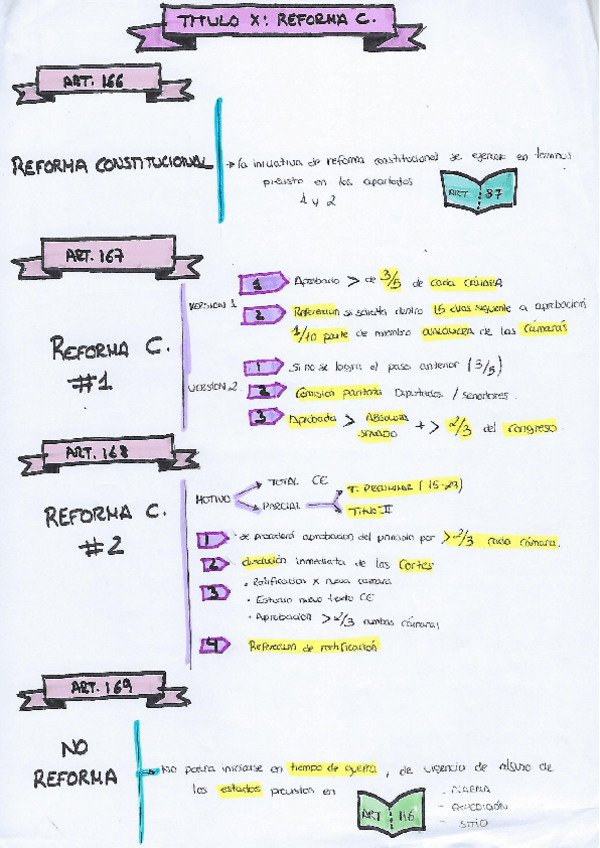 TITULO X: REFORMA C.
ART. 166
REFORMA CONSTITUCIONAL
→ la iniciativa de reforma constitucional se ejerce en terminos
previsto en los apartados
1 y 2
ART 87
ART. 167
REFORMA C.
#1
VERSION 1
1 Aprobado > de 3/5 de cada CÁMARA
2 Referendum si solicita dentro 15 dias siguiente a aprobación
1/10 parte de miembro cualquiera de las cámaras
VERSION 2
1 Si no se logra el paso anterior (3/5)
2 Comisión paritaria Diputados / senadores.
3 Aprobada > ABSOLUTA SENADO + > 2/3 del congreso
ART. 168
REFORMA C.
#2
MOTIVO
TOTAL CE
PARCIAL
T. PRELIMINAR (15-29)
TITULO II
1 · se procederá aprobacion del principio por > 2/3 cada cámara.
2 disolución inmediata de las Cortes
3 · Ratificacion x nueva camara
· Estudio nuevo texto CE
· Aprobacion > 2/3 ambas cámaras
4 Referendum de ratificación
ART. 169
NO
REFORMA
→ No podra iniciarse en tiempo de guerra, de vigencia de alguno de
los estados previstos en
ART 116
- ALARMA
- EXCEPCIÓN
- SITIO